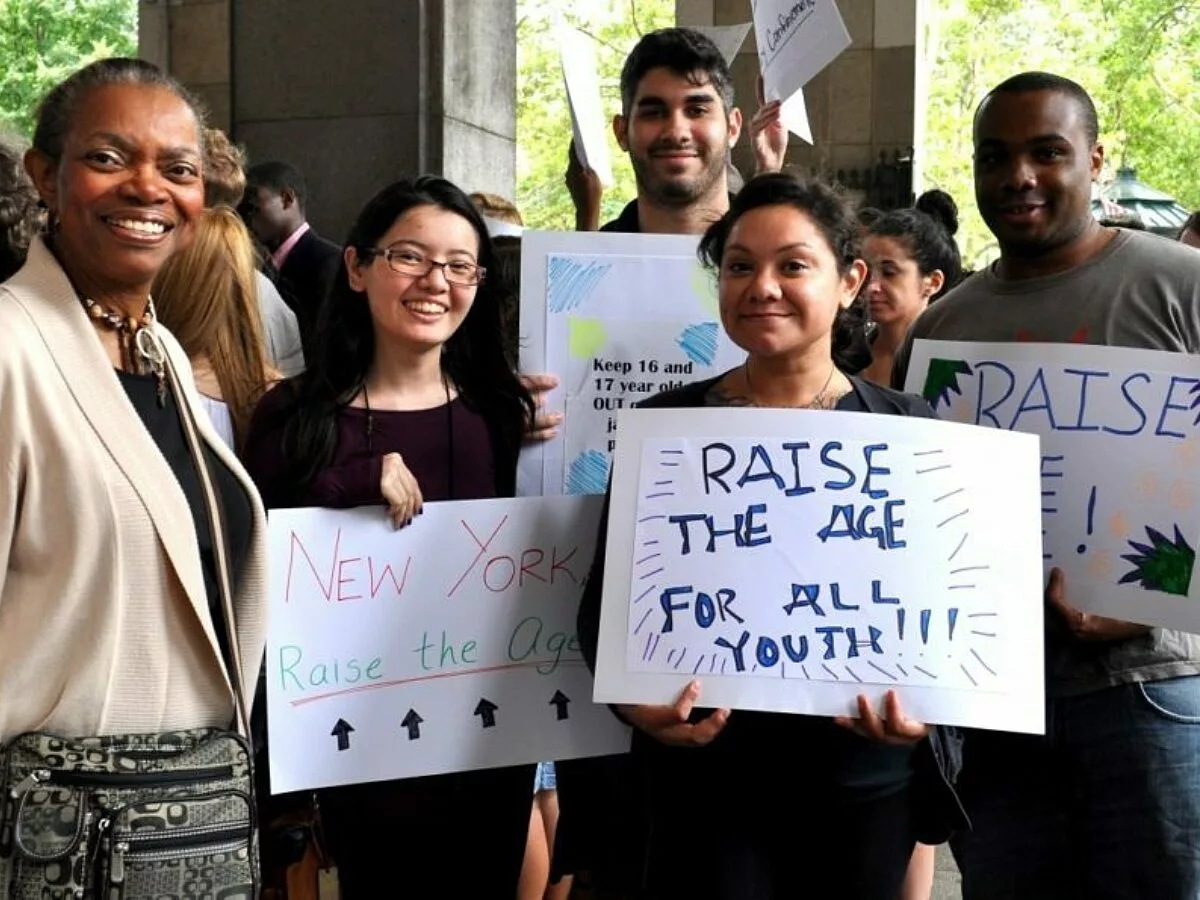 Keep 16 and
17 year old
OUT
NEW YORK,
Raise the Age
RAISE
THE AGE
FOR ALL
YOUTH!!!
RAISE
!